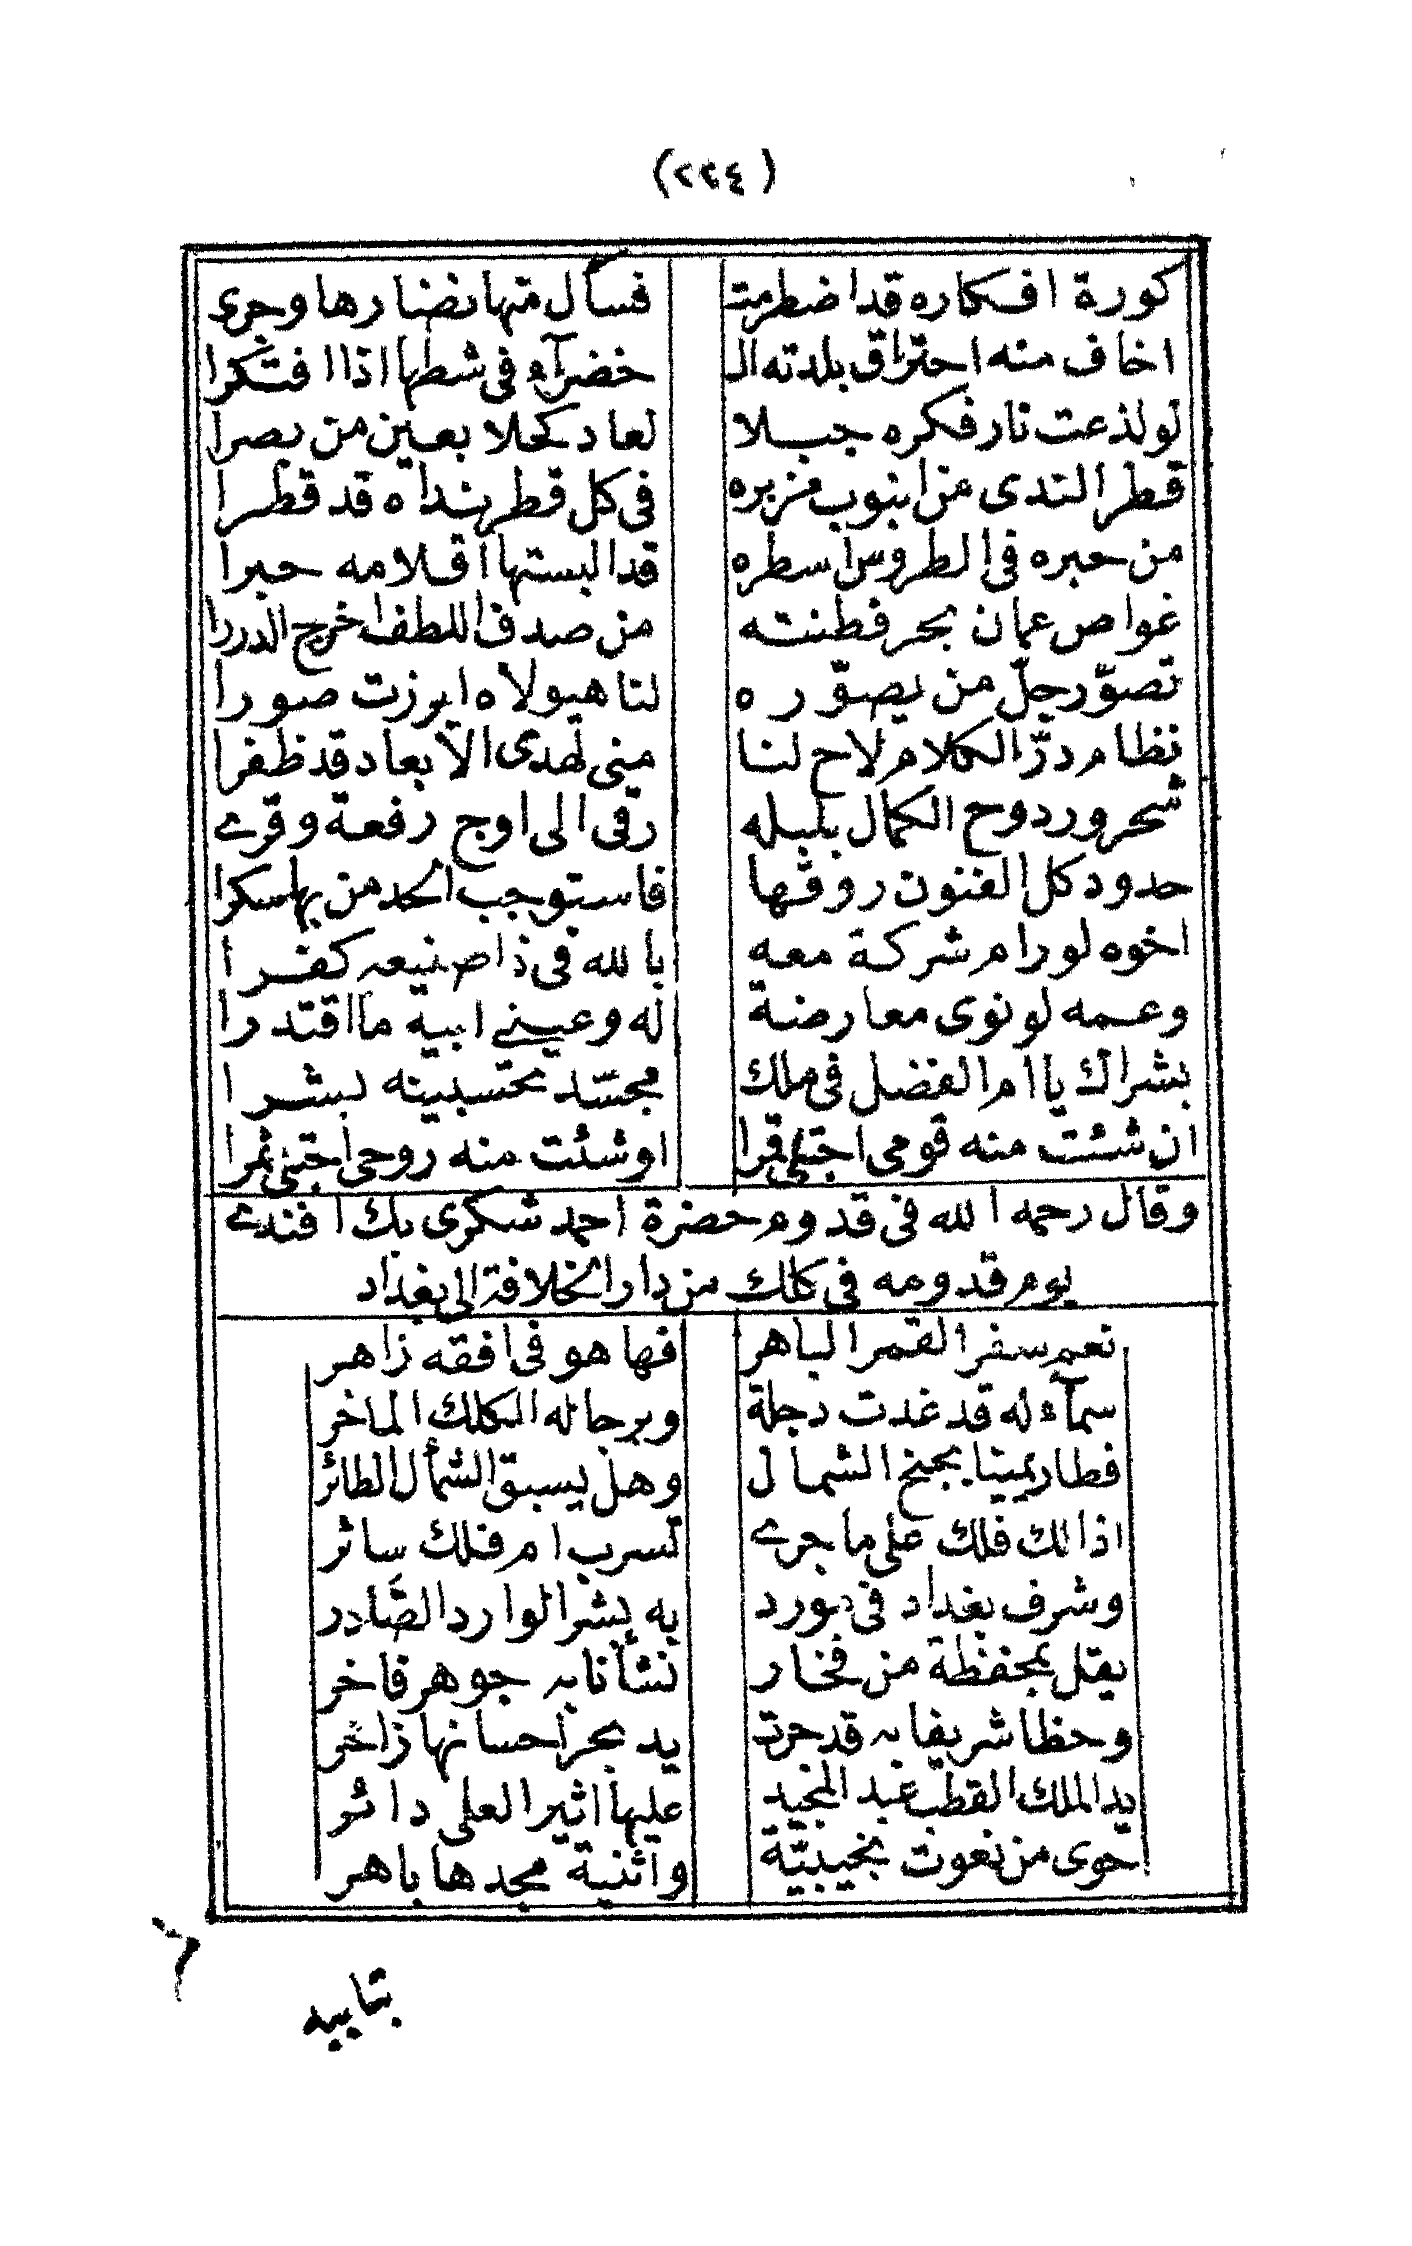 (٢٣٤)
كورة افكاره قد اضطرمت فسأل منها نضارها وجرى
اخاف منه احتراق بلدته الـ خضرآء فى شطها اذا افتكرا
لو لذعت نار فكره جبلا لعاد كحلا بعين من بصرا
قطر الندى من انبوب مزبره فى كل قطر بنداه قد قطرا
من حبره فى الطروس اسطره قد البستها اقلامه حبرا
غواص عمان بحر فطنته من صدف اللطف اخرج الدررا
تصوّر جلّ من يصوّره لنا هيولاه ابرزت صورا
نظام درّ الكلام لاح لنا منى لهدى الابعاد قد ظفرا
شحرور دوح الكمال بلبله رقى الى اوج رفعة وقرى
حدود كل الفنون روقها فاستوجب الحد من بها سكرا
اخوه لو رام شركة معه بالله فى ذا صنيعه كفرا
وعمه لو نوى معارضة له وعينى ابيه ما اقتدرا
بشراك يا ام الفضل فى ملك مجسّد تحتسبينه بشرا
ان شئت منه قومى اجتلى قمرا او شئت منه روحى اجتنى ثمرا
وقال رحمه الله فى قدوم حضرة احمد شكرى بك افندى
يوم قدومه فى كلك من دار الخلافة الى بغداد
نعم سفر القمر الباهر فها هو فى افقه زاهر
سمآء له قد غدت دجلة وبرجا له الكلك الماخر
فطار يمينا بجنح الشمال وهل يسبق الشمأل الطائر
اذا لك فلك على ما جرى تسرب ام فلك سائر
وشرف بغداد فى مورد به بشر الوارد الصّادر
يقل بمحفظة من فخار نشأنا به جوهر فاخر
وحظا شريفا به قد حرت يد بحر احسانها زاخر
يد الملك القطب عبد المجيد عليها اثير العلى دائر
حوى من نعوت نجيبيّة واثنية مجدها باهر
بتابيه